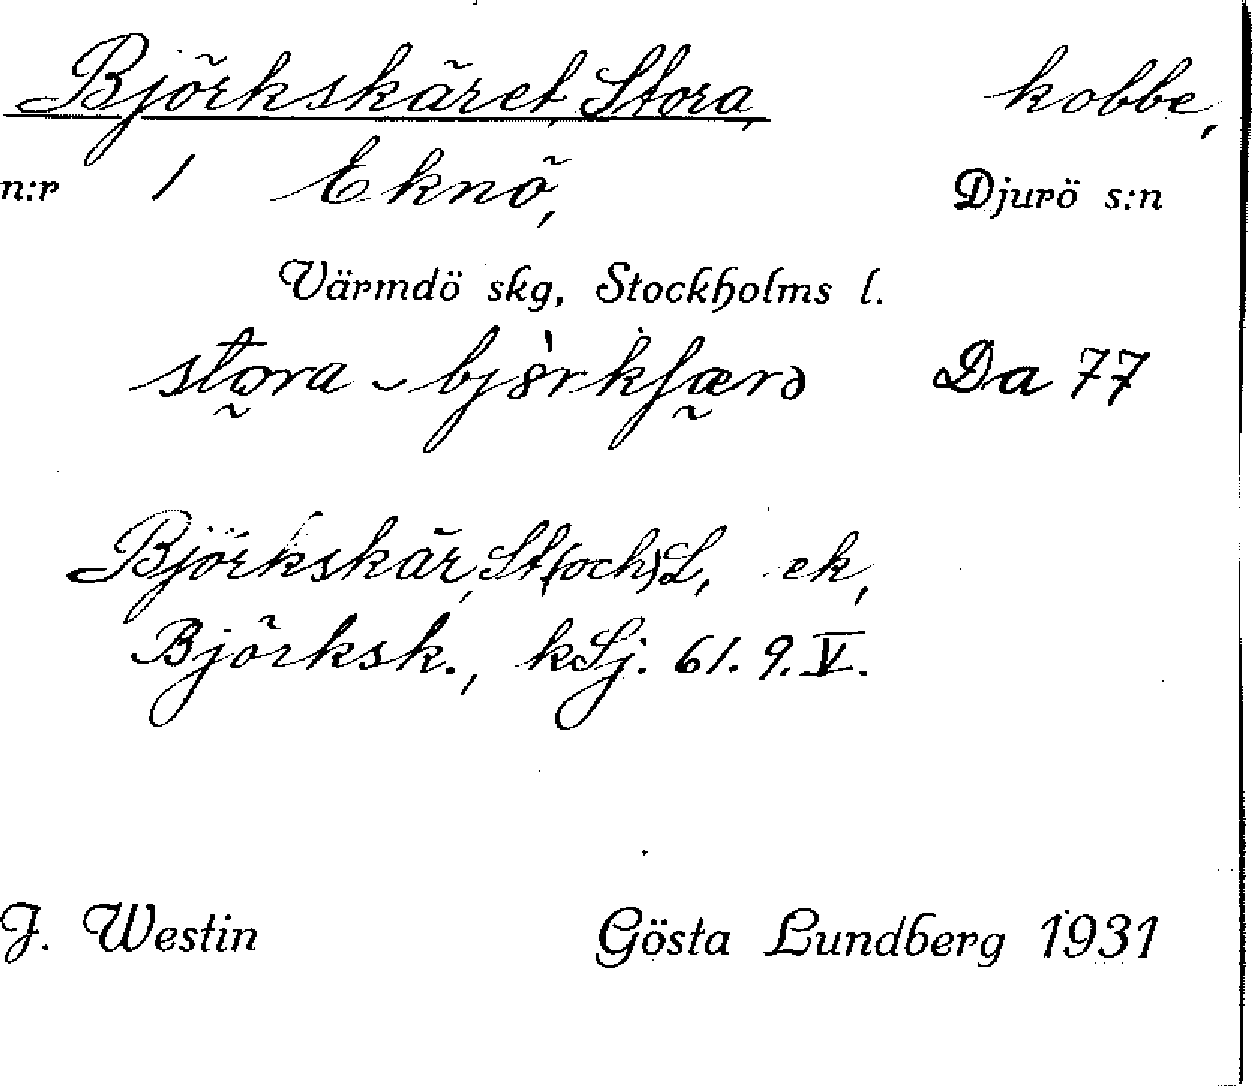 Björkskäret, Stora, kobbe,
n:r 1 Eknö, Djurö s:n
Värmdö skg, Stockholms l.
stora - bjö̀rkʃærə Da 77
Björkskär, St(och)L, ek,
Björksk., kSj. 61. 9. V.
J. Westin Gösta Lundberg 1931